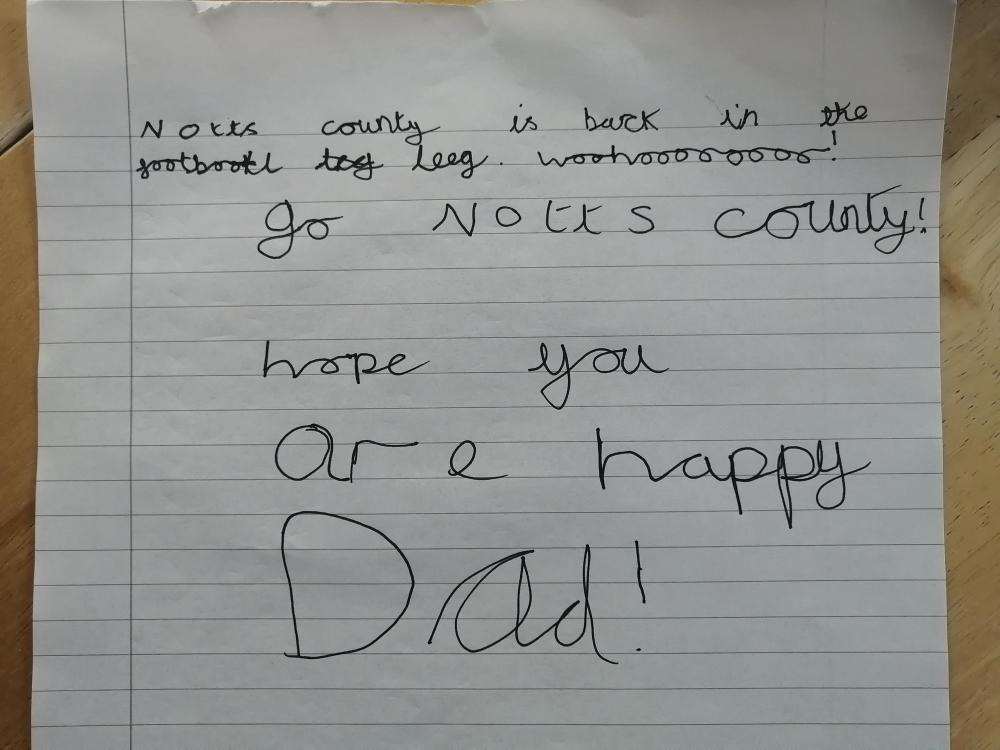 Notts county is back in the
football leeg. woohooooooor!
go Notts county!
hope you
are happy
Dad!